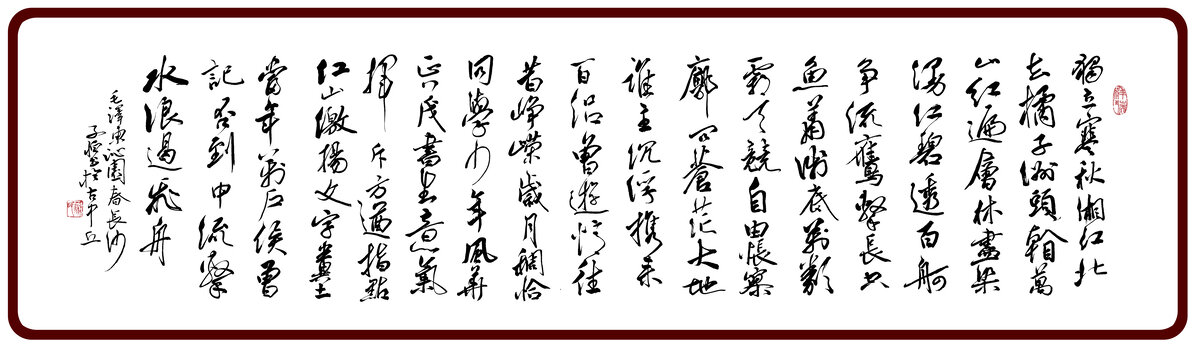 獨立寒秋湘江北
去橘子洲頭看萬
山紅遍層林盡染
漫江碧透百舸
爭流鷹擊長空
魚翔淺底萬類
霜天競自由悵寥
廓問蒼茫大地
誰主沉浮攜來
百侶曾遊憶往
昔崢嶸歲月稠恰
同學少年風華
正茂書生意氣
揮斥方遒指點
江山激揚文字糞土
當年萬戶侯曾
記否到中流擊
水浪遏飛舟
毛澤東沁園春長沙